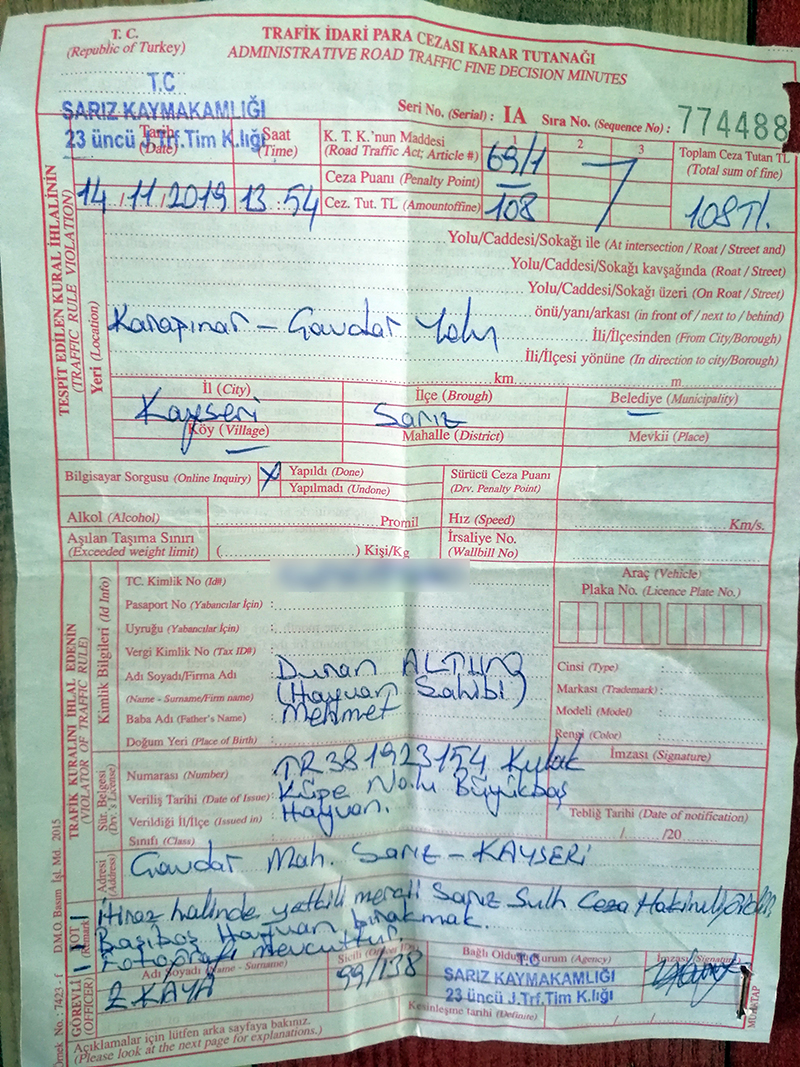 T. C.
(Republic of Turkey)
TRAFİK İDARİ PARA CEZASI KARAR TUTANAĞI
ADMINISTRATIVE ROAD TRAFFIC FINE DECISION MINUTES
T.C
SARIZ KAYMAKAMLIĞI
23 üncü J.Trf.Tim K.lığı
Seri No. (Serial) : IA Sıra No. (Sequence No) : 774488
Tarih (Date)
Saat (Time)
K. T. K.'nun Maddesi (Road Traffic Act; Article #)
1 2 3
69/1
Toplam Ceza Tutan TL (Total sum of fine)
Ceza Puanı (Penalty Point)
14 / 11 / 2019 13 : 54
Cez. Tut. TL (Amountoffine) 108
108 Tl.
TESPİT EDİLEN KURAL İHLALİNİN
(TRAFFIC RULE VIOLATION)
Yeri (Location)
Yolu/Caddesi/Sokağı ile (At intersection / Roat / Street and)
Yolu/Caddesi/Sokağı kavşağında (Roat / Street)
Yolu/Caddesi/Sokağı üzeri (On Roat / Street)
önü/yanı/arkası (in front of / next to / behind)
Karapınar - Gavdar Yolu
İli/İlçesinden (From City/Borough)
İli/İlçesi yönüne (In direction to city/Borough)
km. m
İl (City) İlçe (Brough) Belediye (Municipality)
Kayseri Sarız
Köy (Village) Mahalle (District) Mevkii (Place)
Bilgisayar Sorgusu (Online Inquiry) X Yapıldı (Done)
Yapılmadı (Undone)
Sürücü Ceza Puanı (Drv. Penalty Point)
Alkol (Alcohol) Promil Hız (Speed) Km/s.
Aşılan Taşıma Sınırı (Exceeded weight limit) ( ) Kişi/Kg
İrsaliye No. (Wallbill No)
TRAFİK KURALINI İHLAL EDENİN
(VIOLATOR OF TRAFFIC RULE)
Kimlik Bilgileri (Id Info)
TC. Kimlik No (Id#)
Araç (Vehicle)
Plaka No. (Licence Plate No.)
Pasaport No (Yabancılar İçin) :
Uyruğu (Yabancılar İçin) :
Vergi Kimlik No (Tax ID#) :
Adı Soyadı/Firma Adı : Duran ALTUNÇ
(Name - Surname/Firm name) (Hayvan Sahibi)
Baba Adı (Father's Name) : Mehmet
Doğum Yeri (Place of Birth) :
Cinsi (Type) :
Markası (Trademark) :
Modeli (Model) :
Rengi (Color) :
İmzası (Signature)
Sür. Belgesi (Drv.'s License)
Numarası (Number) : TR381923154 Kulak
Veriliş Tarihi (Date of Issue) : Küpe No.lu Büyükbaş
Verildiği İl/İlçe (Issued in) : Hayvan.
Sınıfı (Class) :
Tebliğ Tarihi (Date of notification)
/ /20
Adresi (Address)
Gavdar Mah. Sarız - KAYSERİ
NOT (Remark)
İtiraz halinde yetkili mercii Sarız Sulh Ceza Hakimliğidir.
Başıboş Hayvan bırakmak.
Fotoğrafı mevcuttur.
GÖREVLİ (OFFICER)
Adı Soyadı (Name - Surname)
Z KAYA
Sicili
99/138
Bağlı Olduğu Kurum (Agency)
T.C
SARIZ KAYMAKAMLIĞI
23 üncü J.Trf.Tim K.lığı
İmzası (Signature)
Kesinleşme tarihi (Definite) / /
Açıklamalar için lütfen arka sayfaya bakınız.
(Please look at the next page for explanations.)
Örnek No. : 7423 - f D.M.O. Basım İşl. Md. 2015